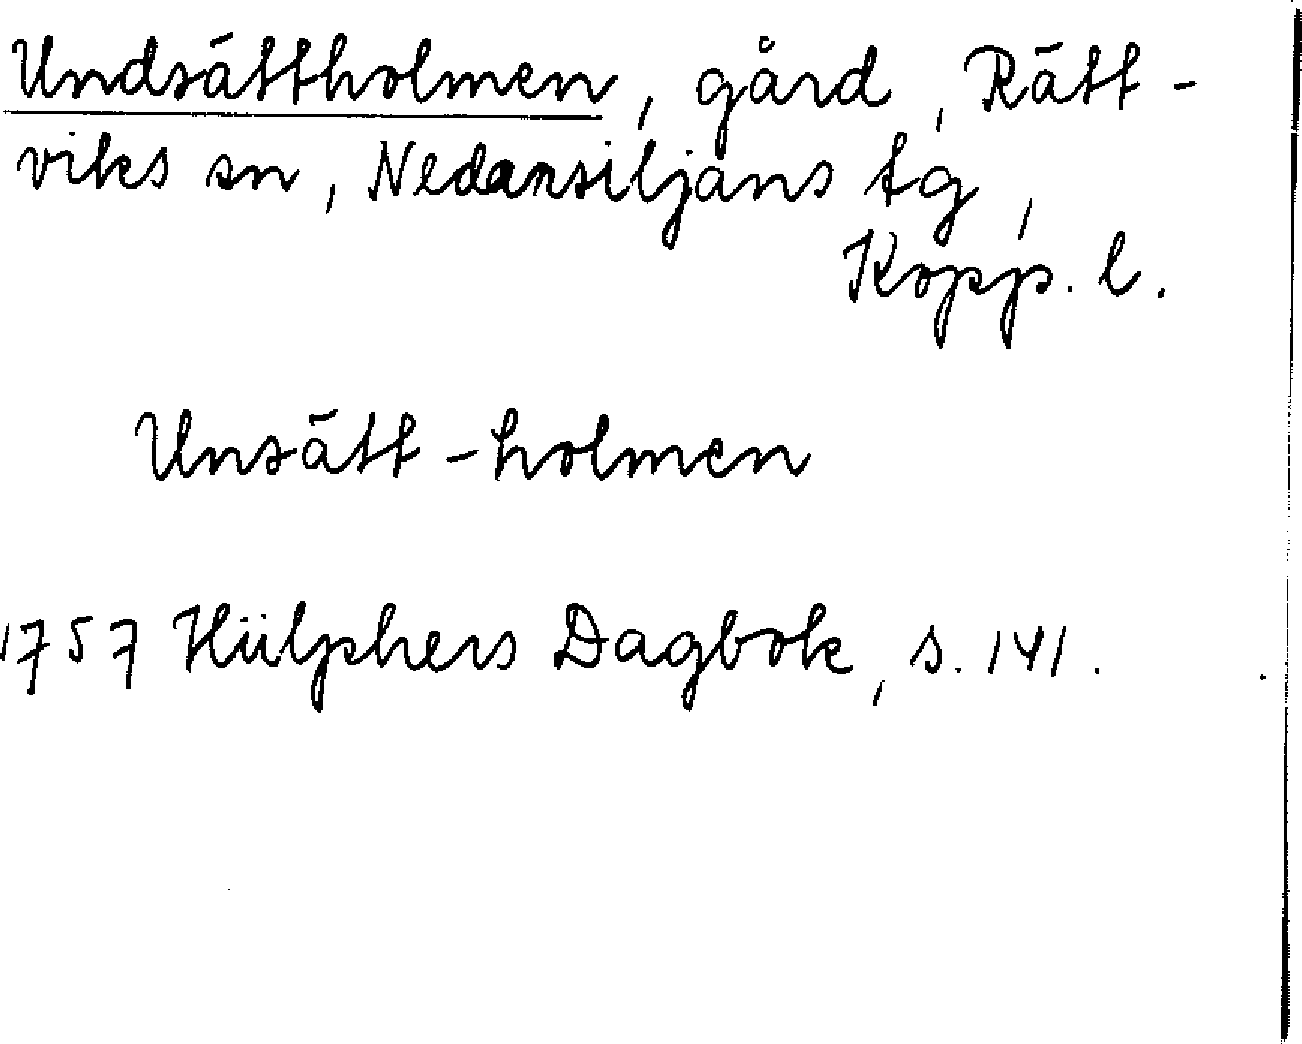 Undsättholmen, gård, Rätt-
viks sn, Nedansiljans tg,
Kopp. l.
Unsätt-holmen
1757 Hülphers Dagbok, s. 141.